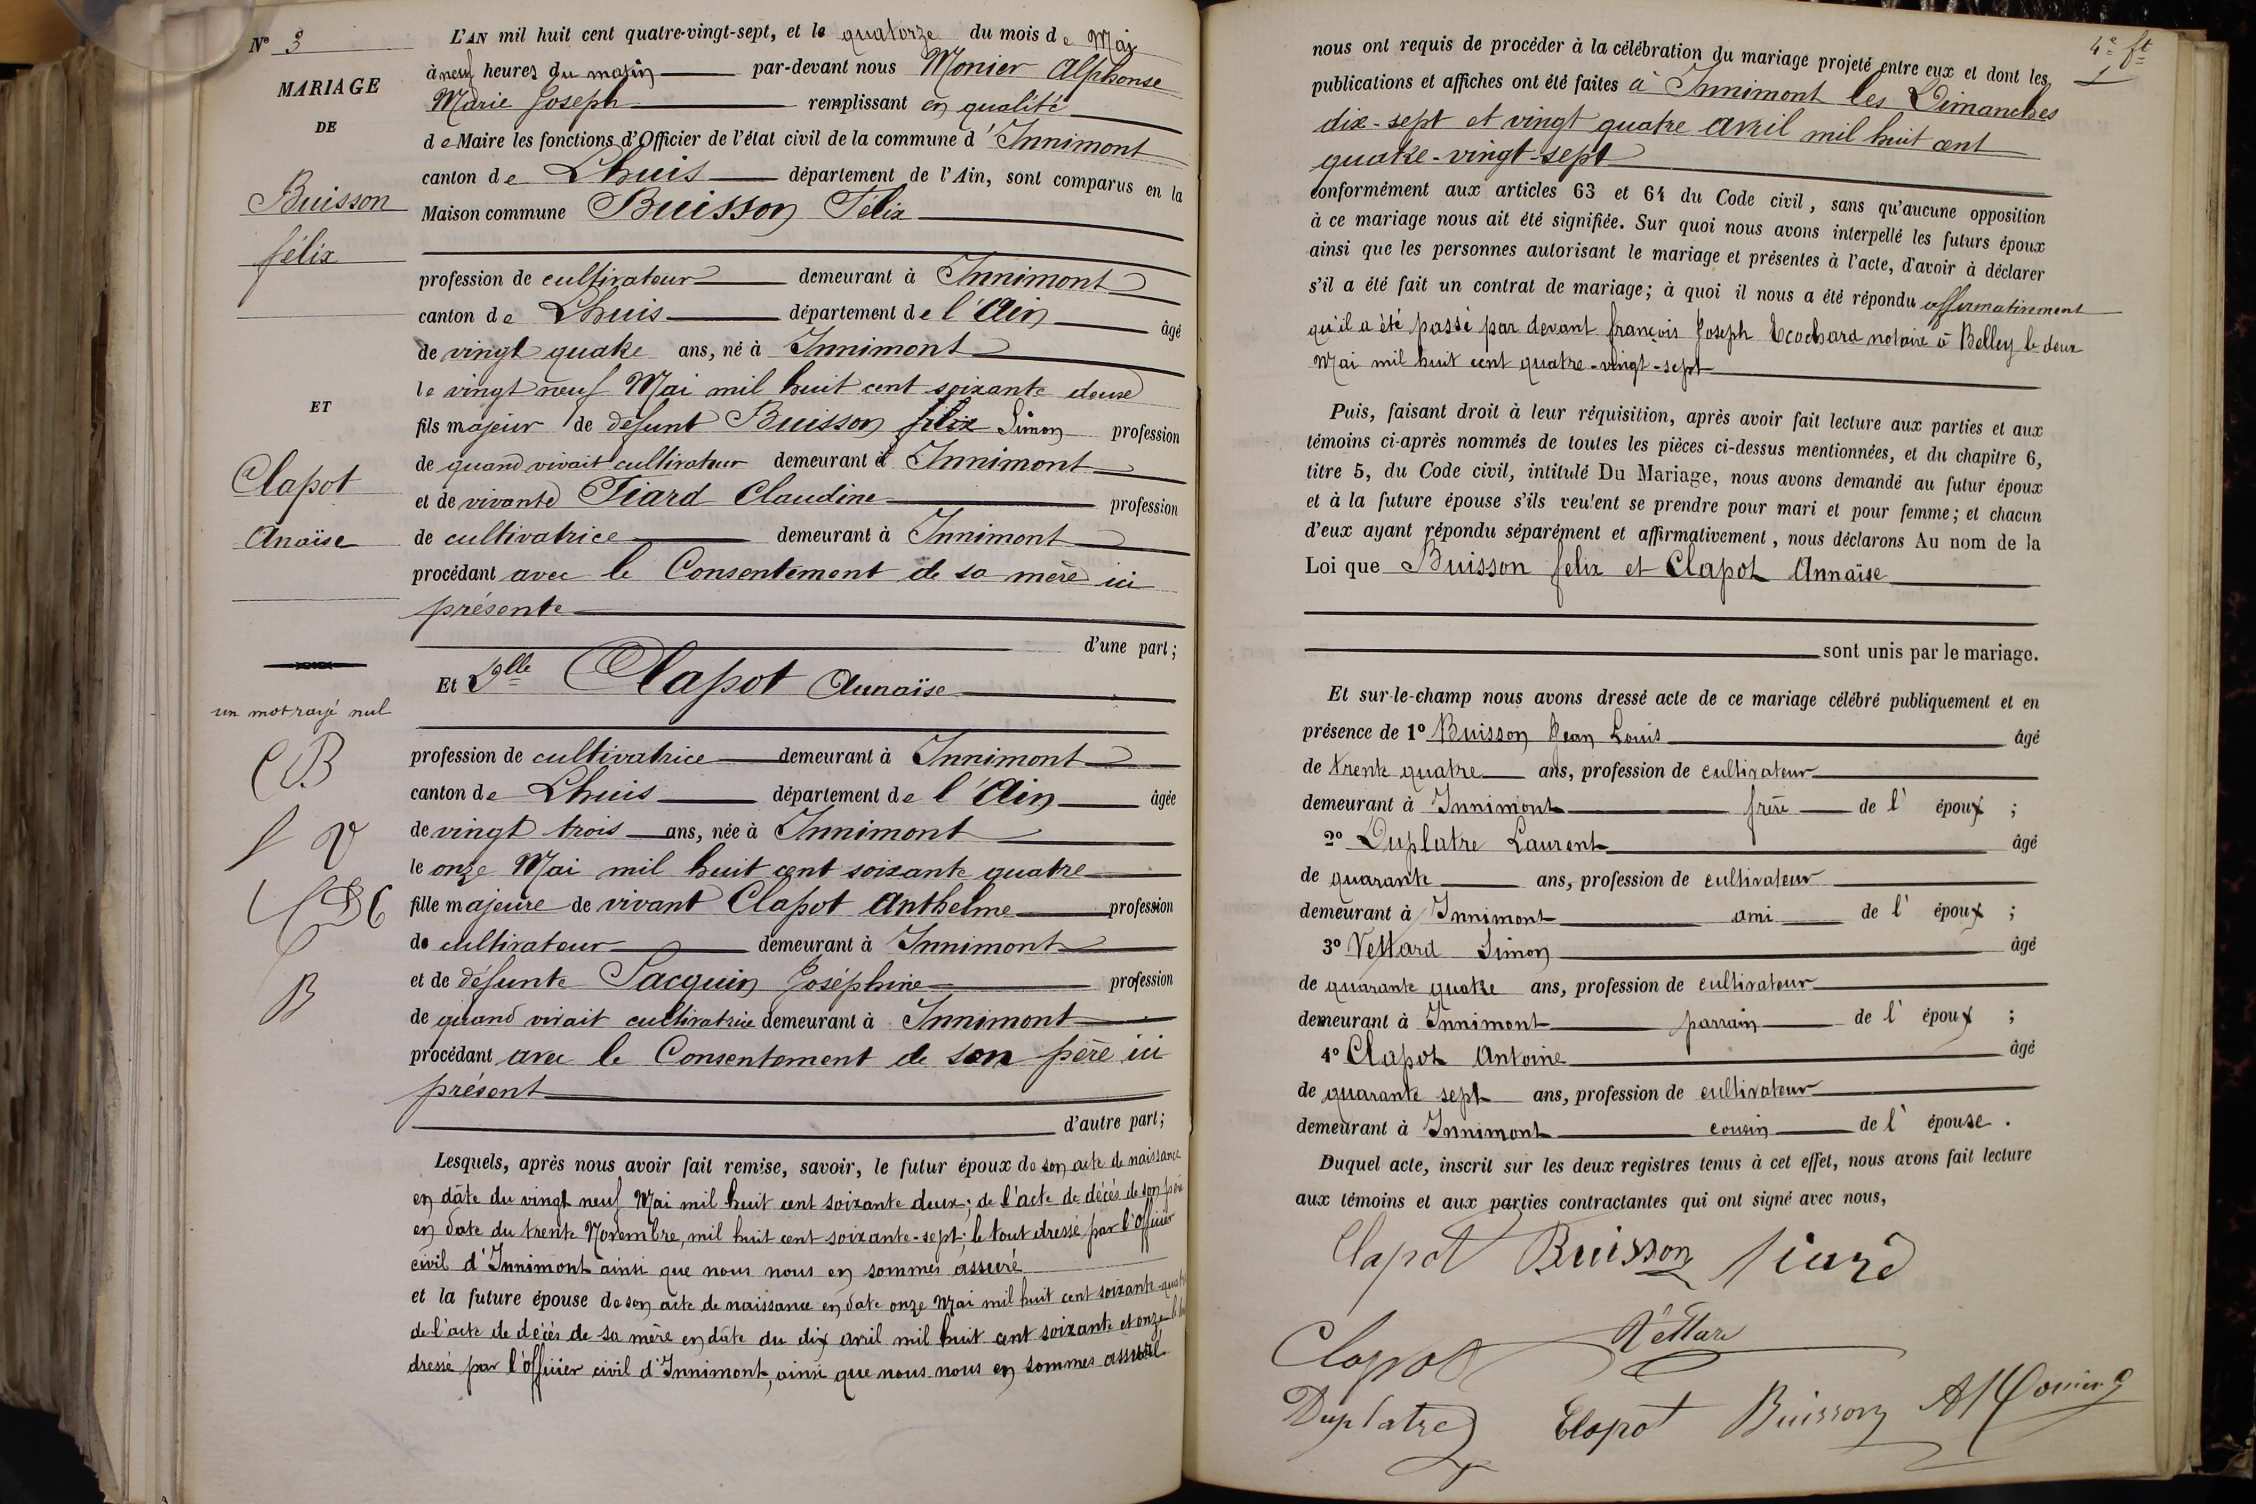 N° 3
MARIAGE
DE
Buisson
félix
ET
Clapot
Anaïse
un mot rayé nul
L'AN mil huit cent quatre-vingt-sept, et le quatorze du mois de Mai
à neuf heures du matin par-devant nous Monier Alphonse
Marie Joseph remplissant en qualité
de Maire les fonctions d'Officier de l'état civil de la commune d'Innimont
canton de Lhuis département de l'Ain, sont comparus en la
Maison commune Buisson Félix
profession de cultivateur demeurant à Innimont
canton de Lhuis département de l'Ain âgé
de vingt quatre ans, né à Innimont
le vingt neuf Mai mil huit cent soixante deux
fils majeur de défunt Buisson félix Simon profession
de quand vivait cultivateur demeurant à Innimont
et de vivante Tiard Claudine profession
de cultivatrice demeurant à Innimont
procédant avec le Consentement de sa mère ici
présente
d'une part;
Et Dlle Clapot Annaïse
profession de cultivatrice demeurant à Innimont
canton de Lhuis département de l'Ain âgée
de vingt trois ans, née à Innimont
le onze Mai mil huit cent soixante quatre
fille majeure de vivant Clapot Anthelme profession
de cultivateur demeurant à Innimont
et de défunte Jacquin Joséphine profession
de quand vivait cultivatrice demeurant à Innimont
procédant avec le Consentement de son père ici
présent
d'autre part;
Lesquels, après nous avoir fait remise, savoir, le futur époux de son acte de naissance
en date du vingt neuf Mai mil huit cent soixante deux; de l'acte de décès de son père
en date du trente Novembre, mil huit cent soixante-sept; le tout dressé par l'Officier
civil d'Innimont ainsi que nous nous en sommes assuré
et la future épouse de son acte de naissance en date onze Mai mil huit cent soixante-quatre
de l'acte de décès de sa mère en date du dix avril mil huit cent soixante et onze le tout
dressé par l'officier civil d'Innimont, ainsi que nous nous en sommes assuré
4e ft
nous ont requis de procéder à la célébration du mariage projeté entre eux et dont les
publications et affiches ont été faites à Innimont les Dimanches
dix-sept et vingt quatre avril mil huit cent
quatre-vingt-sept
conformément aux articles 63 et 64 du Code civil, sans qu'aucune opposition
à ce mariage nous ait été signifiée. Sur quoi nous avons interpellé les futurs époux
ainsi que les personnes autorisant le mariage et présentes à l'acte, d'avoir à déclarer
s'il a été fait un contrat de mariage; à quoi il nous a été répondu affirmativement
qu'il a été passé par devant françois Joseph Ecochard notaire à Belley le deux
Mai mil huit cent quatre-vingt-sept
Puis, faisant droit à leur réquisition, après avoir fait lecture aux parties et aux
témoins ci-après nommés de toutes les pièces ci-dessus mentionnées, et du chapitre 6,
titre 5, du Code civil, intitulé Du Mariage, nous avons demandé au futur époux
et à la future épouse s'ils veulent se prendre pour mari et pour femme; et chacun
d'eux ayant répondu séparément et affirmativement, nous déclarons Au nom de la
Loi que Buisson félix et Clapot Annaïse
sont unis par le mariage.
Et sur-le-champ nous avons dressé acte de ce mariage célébré publiquement et en
présence de 1° Buisson Jean Louis âgé
de trente quatre ans, profession de cultivateur
demeurant à Innimont frère de l'époux;
2° Duplatre Laurent âgé
de quarante ans, profession de cultivateur
demeurant à Innimont ami de l'époux;
3° Vettard Simon âgé
de quarante quatre ans, profession de cultivateur
demeurant à Innimont parrain de l'époux;
4° Clapot Antoine âgé
de quarante sept ans, profession de cultivateur
demeurant à Innimont cousin de l'épouse.
Duquel acte, inscrit sur les deux registres tenus à cet effet, nous avons fait lecture
aux témoins et aux parties contractantes qui ont signé avec nous,
Clapot Buisson Tiard
Clapot Vettard
Duplatre Clapot Buisson A Monier